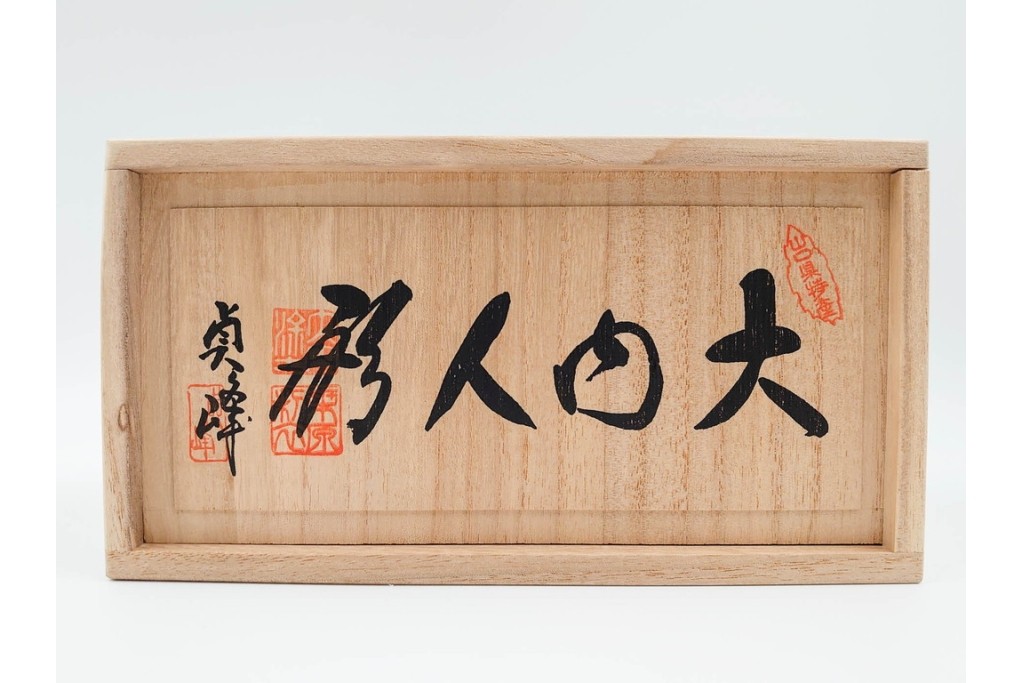 大内人形
山口県特産
貞峰